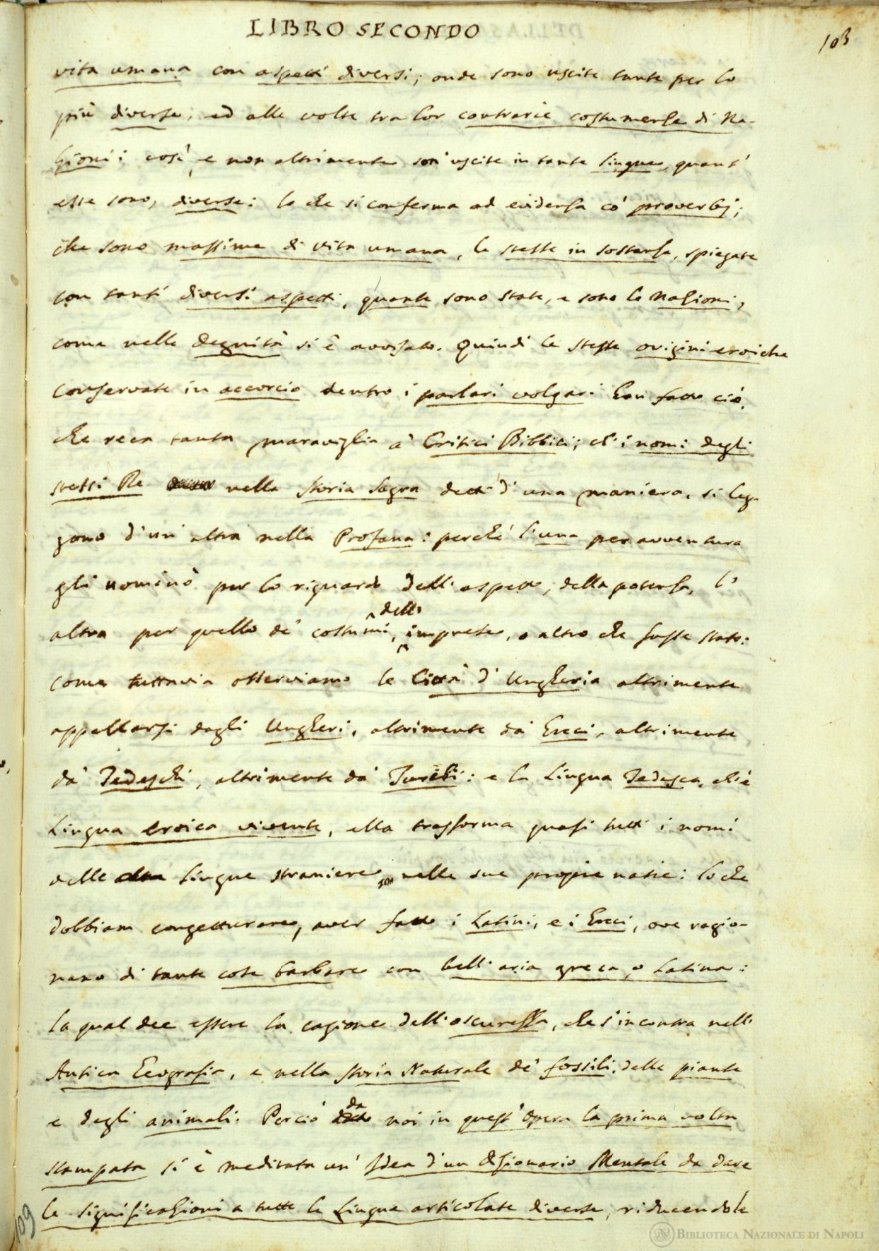 LIBRO SECONDO
103
vita umana con aspetti diversi; onde sono uscite tante per lo
più diverse, ed alle volte tra lor contrarie costumanze di Na-
zioni: così, e non altrimente son'uscite in tante lingue, quant'
esse sono, diverse: lo che si conferma ad evidenza co' proverbj;
che sono massime di vita umana, le stesse in sostanza, spiegate
con tanti diversi aspetti, quante sono state, e sono le Nazioni,
come nelle Degnità si è avvisato. Quindi le stesse origini eroiche
conservate in accorcio dentro i parlari volgari han fatto ciò,
che reca tanta maraviglia a' Critici Bibbici; ch'i nomi degli
stessi Re nella Storia Sagra detti d'una maniera, si leg-
gono d'un' altra nella Profana: perchè l'una per avventura
gli nominò per lo riguardo dell'aspetto, della potenza, l'
altra per quello de' costumi, dell' imprese, o altro che fusse stato:
come tuttavia osserviamo le Città d'Ungheria altrimente
appellarsi dagli Ungheri, altrimente da' Greci, altrimente
da' Tedeschi, altrimente da' Turchi: e la Lingua Tedesca, ch'è
Lingua eroica vivente, ella trasforma quasi tutti i nomi
delle lingue straniere nelle sue propie natie: lo che
dobbiam congetturare, aver fatto i Latini, e i Greci, ove ragio-
nano di tante cose barbare con bell'aria greca, o Latina:
la qual dee essere la cagione dell'oscurezza, che s'incontra nell'
Antica Geografia, e nella Storia Naturale de' fossili, delle piante
e degli animali. Perciò da noi in quest'Opera la prima volta
stampata si è meditata un'Idea d'un Dizionario Mentale da dare
le significazioni a tutte le Lingue articolate diverse, riducendole
109
BIBLIOTECA NAZIONALE DI NAPOLI